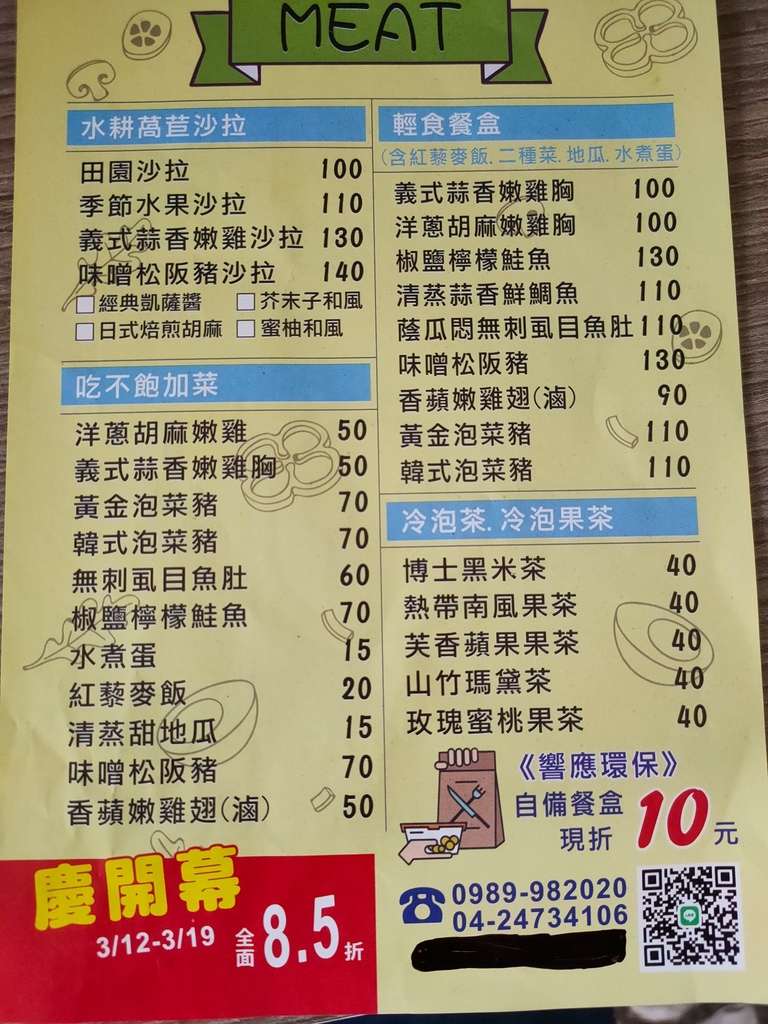 MEAT
水耕萵苣沙拉
田園沙拉 100
季節水果沙拉 110
義式蒜香嫩雞沙拉 130
味噌松阪豬沙拉 140
經典凱薩醬 芥末子和風
日式焙煎胡麻 蜜柚和風
吃不飽加菜
洋蔥胡麻嫩雞 50
義式蒜香嫩雞胸 50
黃金泡菜豬 70
韓式泡菜豬 70
無刺虱目魚肚 60
椒鹽檸檬鮭魚 70
水煮蛋 15
紅藜麥飯 20
清蒸甜地瓜 15
味噌松阪豬 70
香蘋嫩雞翅(滷) 50
輕食餐盒
(含紅藜麥飯.二種菜.地瓜.水煮蛋)
義式蒜香嫩雞胸 100
洋蔥胡麻嫩雞胸 100
椒鹽檸檬鮭魚 130
清蒸蒜香鮮鯛魚 110
蔭瓜悶無刺虱目魚肚 110
味噌松阪豬 130
香蘋嫩雞翅(滷) 90
黃金泡菜豬 110
韓式泡菜豬 110
冷泡茶.冷泡果茶
博士黑米茶 40
熱帶南風果茶 40
芙香蘋果果茶 40
山竹瑪黛茶 40
玫瑰蜜桃果茶 40
《響應環保》
自備餐盒
現折 10元
慶開幕
3/12-3/19 全面8.5折
0989-982020
04-24734106